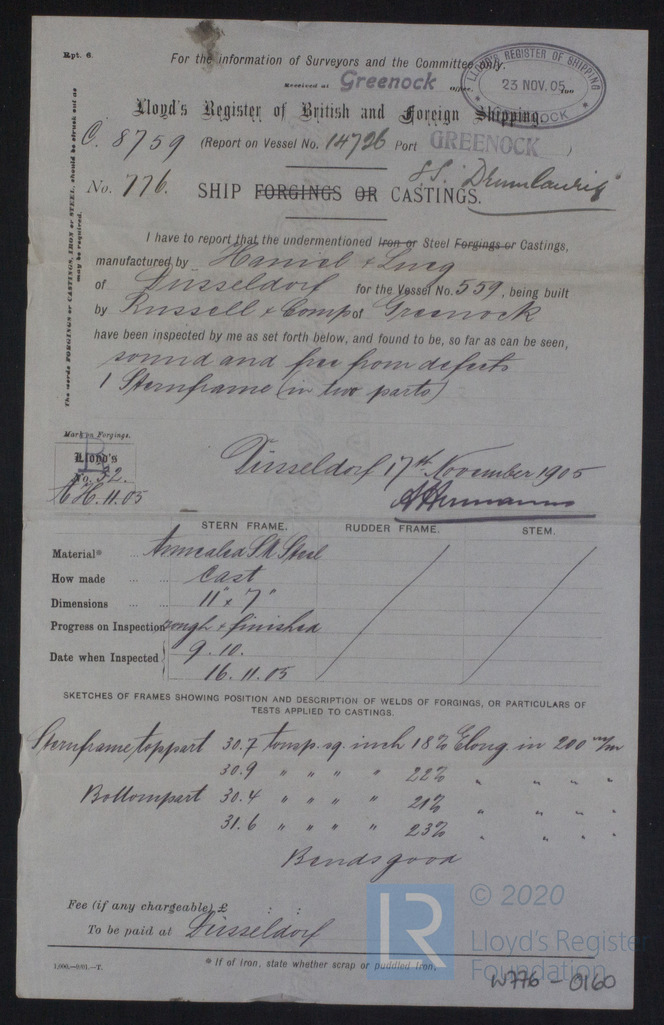 Rpt. 6.
For the information of Surveyors and the Committee only.
Received at Greenock Office,
LLOYD'S REGISTER OF SHIPPING
23 NOV. 05
Lloyd's Register of British and Foreign Shipping.
C. 8759 (Report on Vessel No. 14726 Port GREENOCK )
No. 776. SHIP FORGINGS OR CASTINGS.
S.S. "Drumlanrig"
The words FORGINGS or CASTINGS, IRON or STEEL, should be struck out as may be required.
I have to report that the undermentioned Iron or Steel Forgings or Castings,
manufactured by Haniel & Lueg
of Düsseldorf for the Vessel No. 559, being built
by Russell & Comp of Greenock
have been inspected by me as set forth below, and found to be, so far as can be seen,
sound and free from defects
1 Sternframe (in two parts)
Mark on Forgings.
Lloyd's
No. 52.
A H. 11.05
Düsseldorf 17th November 1905
A Hermanns
STERN FRAME. RUDDER FRAME. STEM.
Material* ... ... Annealed SM Steel
How made ... ... cast
Dimensions ... ... 11" x 7"
Progress on Inspection rough & finished
Date when Inspected 9. 10.
16. 11. 05
SKETCHES OF FRAMES SHOWING POSITION AND DESCRIPTION OF WELDS OF FORGINGS, OR PARTICULARS OF
TESTS APPLIED TO CASTINGS.
Sternframe, toppart 30.7 tons p. sq. inch 18% Elong in 200 m/m
30.9 " " " " 22% " " " "
Bottompart 30.4 " " " " 21% " " " "
31.6 " " " " 23% " " " "
Bends good
Fee (if any chargeable) £ : :
To be paid at Düsseldorf
1,000.—6/01.—T.
* If of Iron, state whether scrap or puddled Iron.
LR
© 2020
Lloyd's Register
Foundation
W776-0160